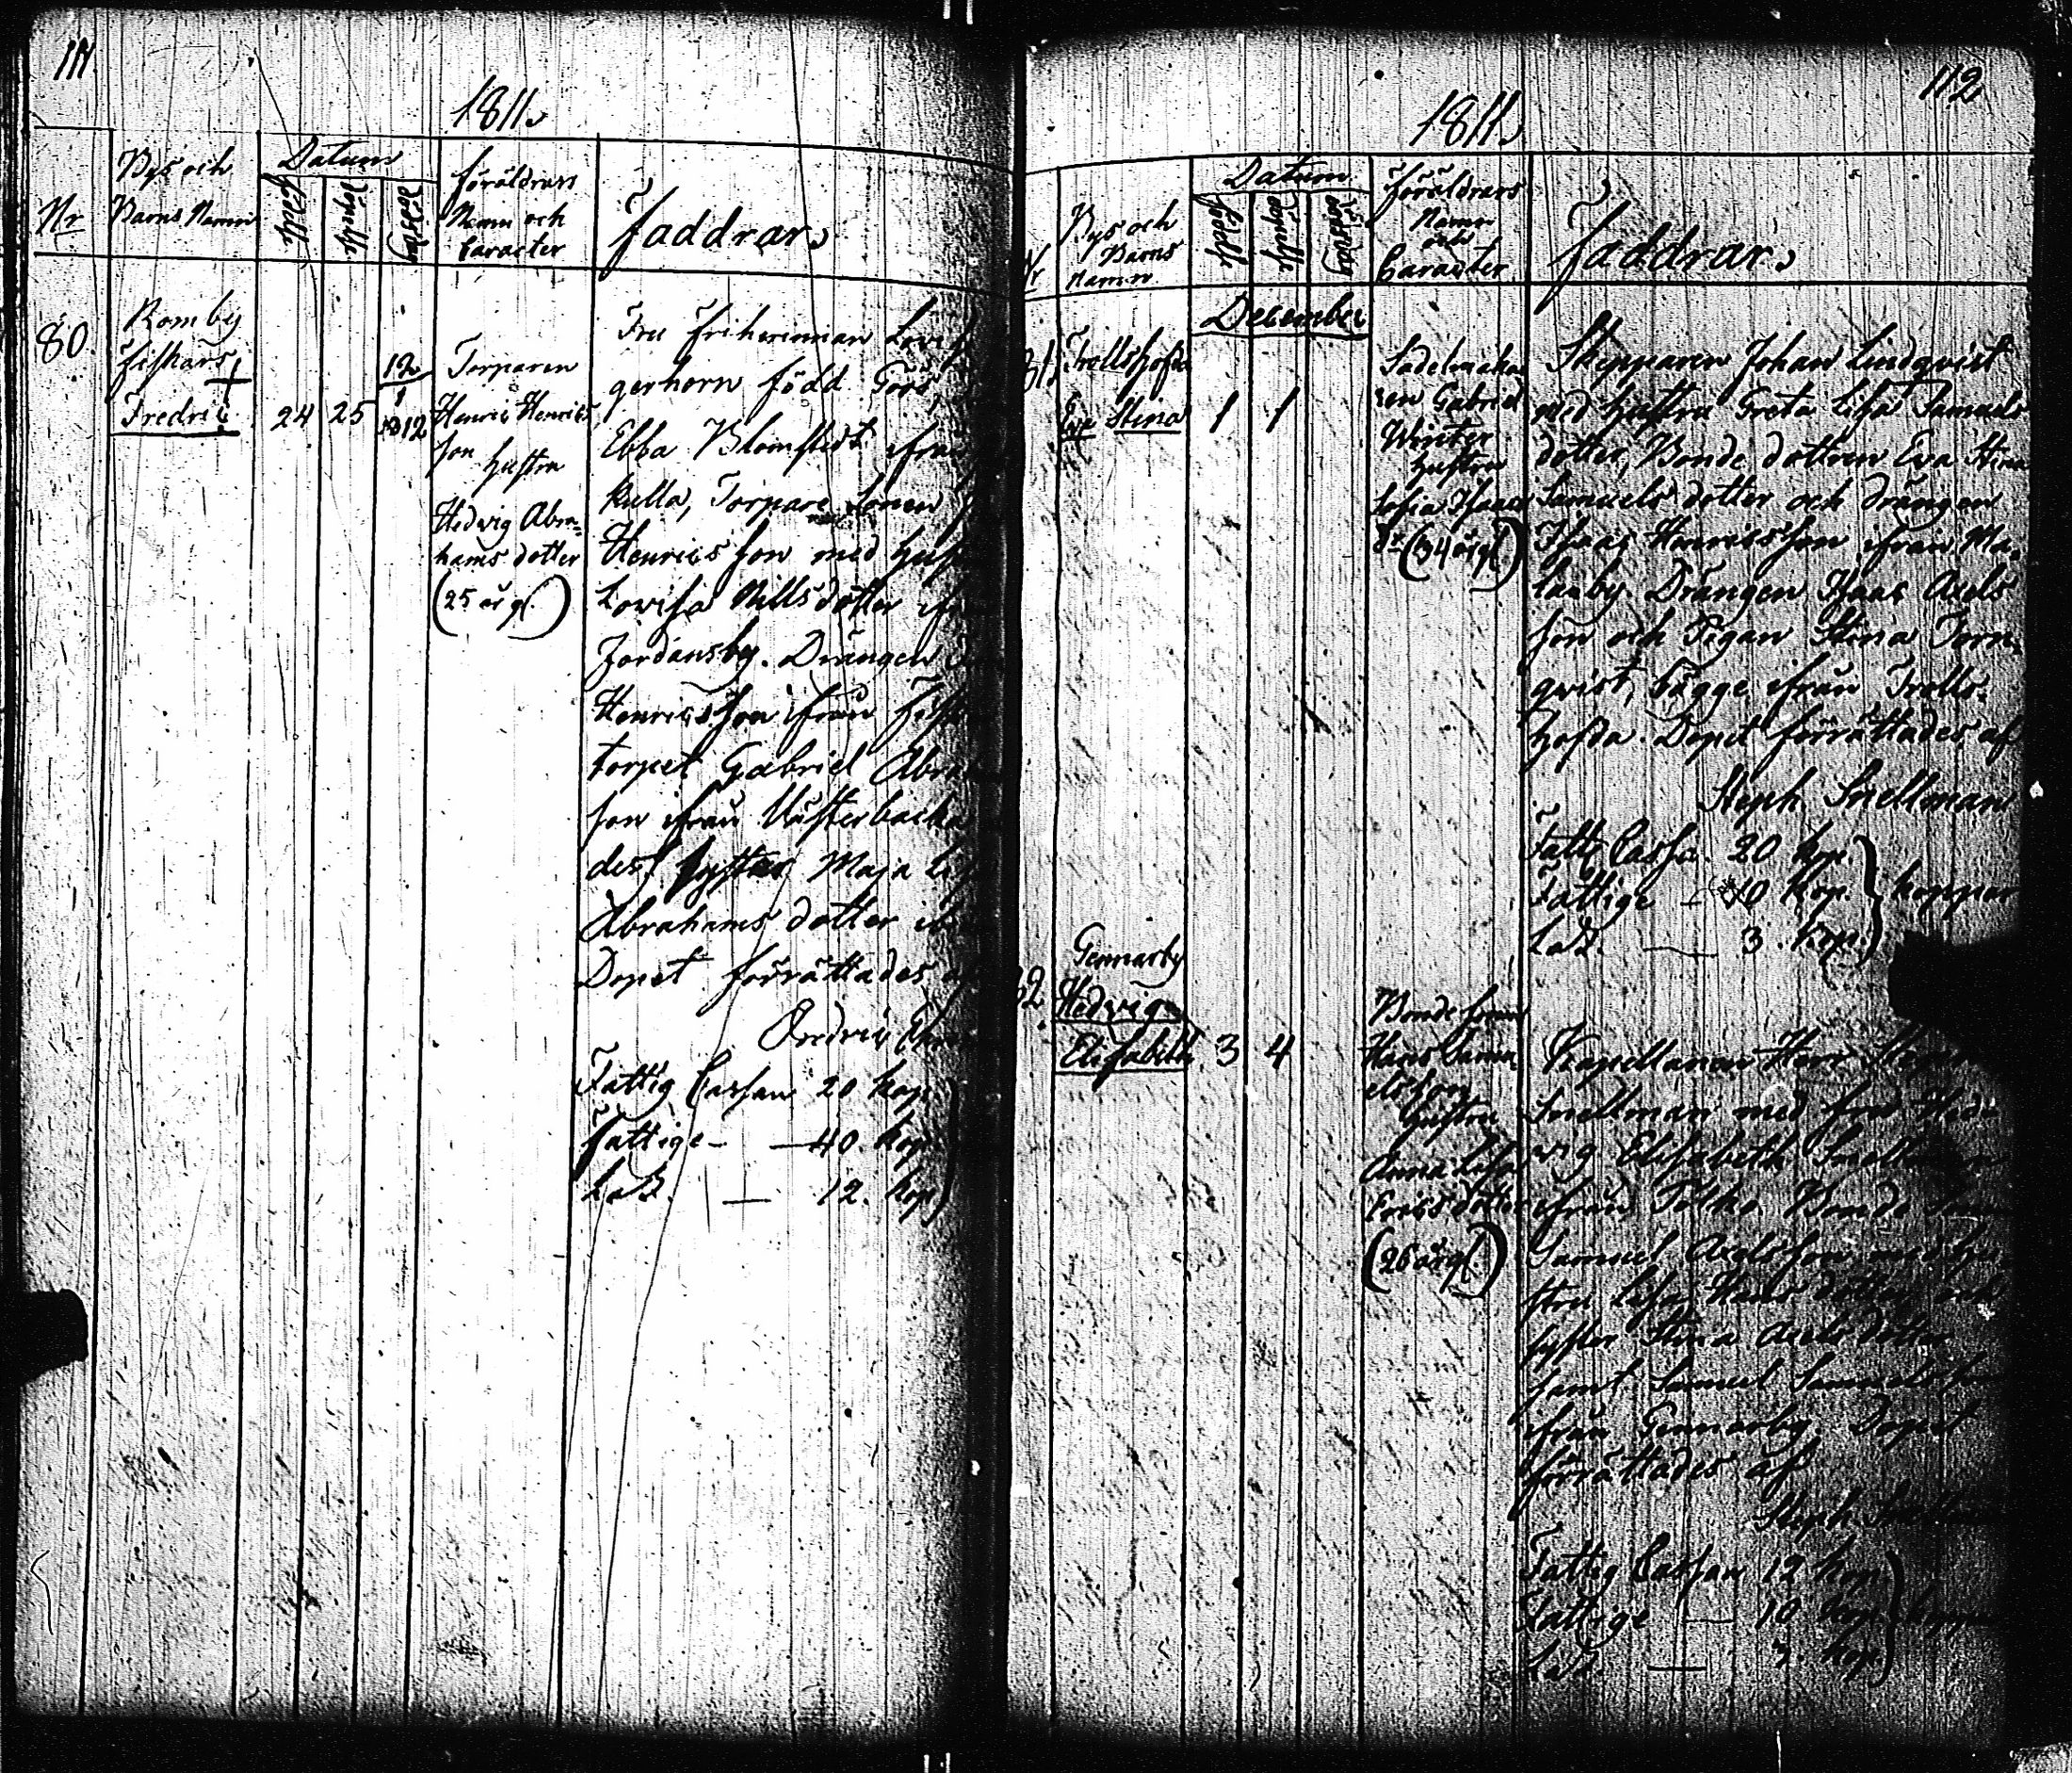 111.
1811.
Nr
Bys och
Barns Namn
Datum
födelse
döpelse
dödsdag
föräldrars
Namn och
Caracter
Faddrar
80.
Romby
Fiskars
Fredric
24 25
12
1
1812
Torparen
Henric Henrics
son hustru
Hedwig Abra-
hams dotter
(25 år gl.)
Fru Friherrinnan Lovis
gerhorn född Törs
Ebba Blomstedt ifrån
kulla, Torpare Sonen
Henricsson med hust
Lovisa Nillsdotter ifr
Jordansby. Drängen
Henricsson ifrån Fisk
torpet Gabriel Abra
son ifrån Wästerbacka
dess syster Maja Lis
Abrahams dotter ib
Dopet förrättades af
Fredric
Fattig Cassan 20 kop.
Fattige - 40. kop.
LaZ. - 12. kop.
112
1811.
Nr
Bys och
Barns
Namn
Datum
födelse
döpelse
dödsdag
Föräldrars
Namn
och
Caracter
Faddrar
December
81.
Trollshofda
Eva Stina
1 1
Sadelmaka
ren Gabriel
Winter
hustru
Sofia Isaacs
dr (34 år gl.)
Skepparen Johan Lindqvist
med hustru Greta Lisa Samuels
dotter, Bonde dottren Eva Stina
Samuels dotter och drängen
Isaac Henricsson ifrån Ma-
lanby Drängen Isaac Axels
son och Pigan Stina Törn-
qvist, bägge ifrån Trolls-
hofda. Dopet förrättades af
Steph Snellman
Fatt. Cassa. 20 kop.
Fattige - 10 kop. kopper
LaZ. - 3. kop.
82.
Gennarby
Hedvig
Elisabeth
3 4
Bonde sonen
Hans Samu-
elsson
hustru
Anna Lisa
Ericsdotter
(26 år gl.)
Kapellanen Herr Steph
Snellman med fru Hed-
vig Elisabeth Snellman
ifrån Tolko Bonde
Samuel Axelsson med hu-
stru Lisa Hans dotter, och
syster Stina Axels dotter
samt Samuel Samuels son
ifrån Gennarby. Dopet
förrättades af
Steph Snellman
Fattig Cassan 12 kop.
Fattige - 10 kop. kopper
LaZ. - 3. kop.